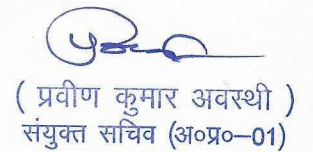 ( प्रवीण कुमार अवस्थी )
संयुक्त सचिव (अ०प्र०—01)